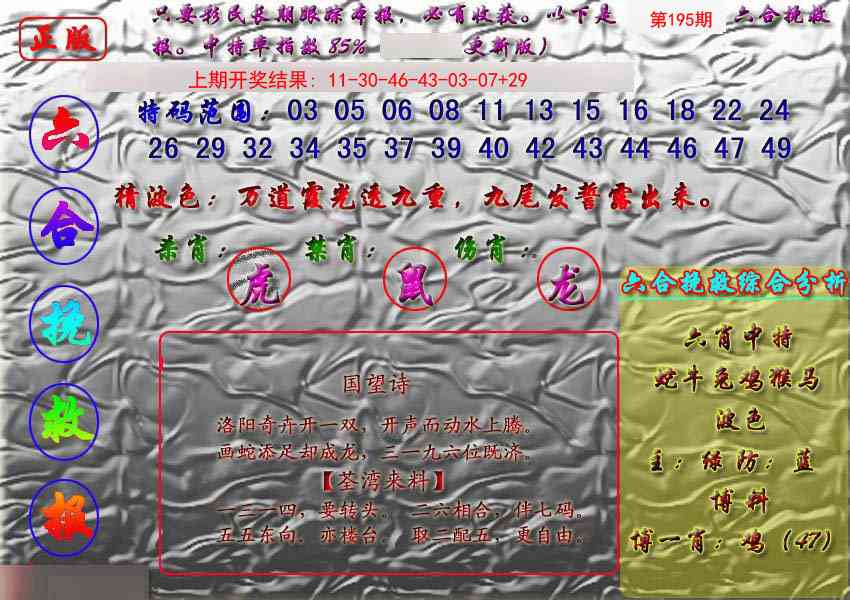 正版
只要彩民长期跟踪本报，必有收获。以下是 第195期 六合挽救
报。中特率指数85% 更新版）
上期开奖结果：11-30-46-43-03-07+29
六合挽救报
特码范围：03 05 06 08 11 13 15 16 18 22 24
26 29 32 34 35 37 39 40 42 43 44 46 47 49
猜波色：万道霞光透九重，九尾发誓露出来。
杀肖：虎 禁肖：鼠 伤肖：龙
国望诗
洛阳奇卉开一双，开声而动水上腾。
画蛇添足却成龙，三一九六位既济。
【荃湾来料】
一三一四，要转头。 二六相合，伴七码。
五五东向，亦楼台。 取二配五，更自由。
六合挽救综合分析
六肖中特
蛇牛兔鸡猴马
波色
主：绿防：蓝
博料
博一肖：鸡（47）